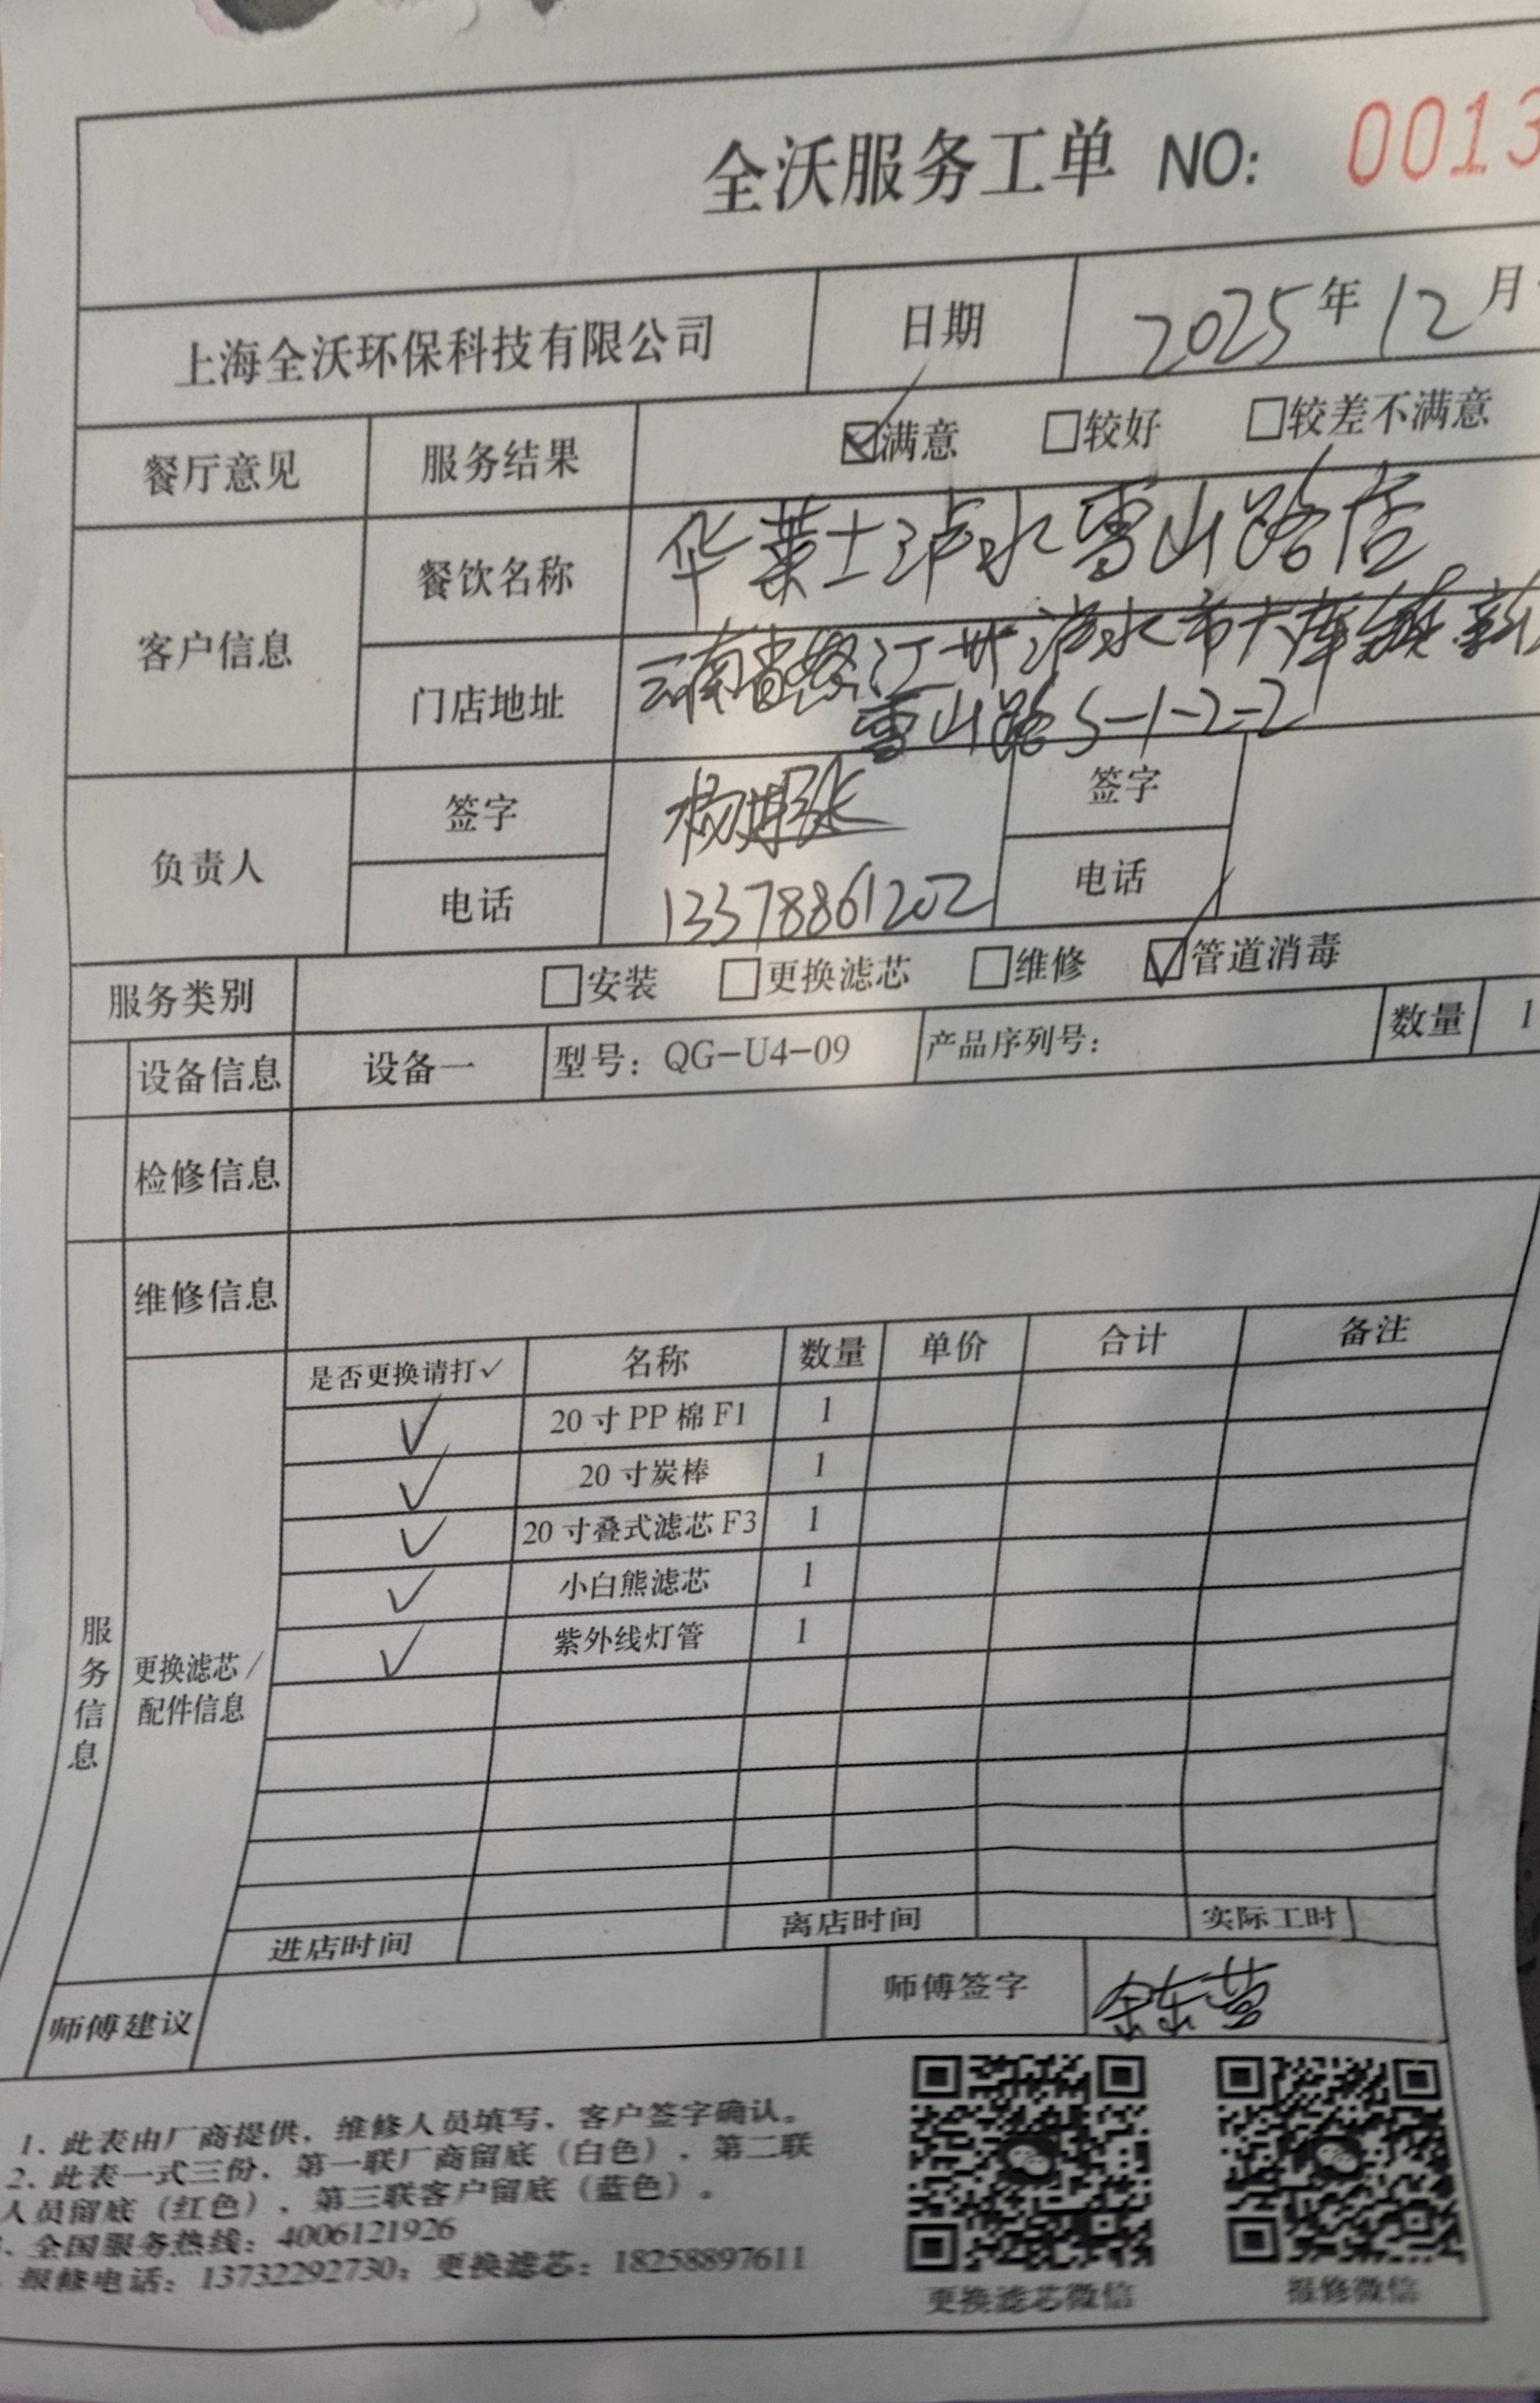 全沃服务工单 NO: 0013
上海全沃环保科技有限公司 日期 2025年12月
餐厅意见 服务结果 ☑满意 □较好 □较差不满意
客户信息 餐饮名称 华莱士泸水雪山路店
门店地址 云南省怒江州泸水市六库镇新
雪山路5-1-2-2
负责人 签字 签字
电话 13378861202 电话
服务类别 □安装 □更换滤芯 □维修 ☑管道消毒
设备信息 设备一 型号：QG-U4-09 产品序列号： 数量 1
检修信息
维修信息
服务信息 更换滤芯/配件信息
是否更换请打✓ 名称 数量 单价 合计 备注
✓ 20寸PP棉F1 1
✓ 20寸炭棒 1
✓ 20寸叠式滤芯F3 1
✓ 小白熊滤芯 1
✓ 紫外线灯管 1
进店时间 离店时间 实际工时
师傅建议 师傅签字
1、此表由厂商提供，维修人员填写，客户签字确认。
2、此表一式三份，第一联厂商留底（白色），第二联
人员留底（红色），第三联客户留底（蓝色）。
、全国服务热线：4006121926
报修电话：13732292730；更换滤芯：18258897611
更换滤芯微信 报修微信